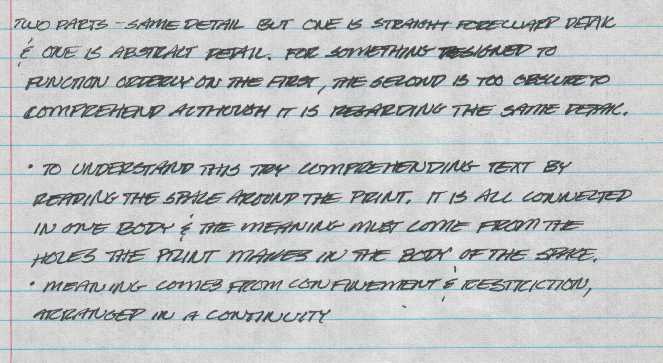 TWO PARTS - SAME DETAIL BUT ONE IS STRAIGHT FOREWARD DETAIL
& ONE IS ABSTRACT DETAIL. FOR SOMETHING DESIGNED TO
FUNCTION ORDERLY ON THE FIRST, THE SECOND IS TOO OBSCURE TO
COMPREHEND ALTHOUGH IT IS REGARDING THE SAME DETAIL.
• TO UNDERSTAND THIS TRY COMPREHENDING TEXT BY
READING THE SPACE AROUND THE PRINT. IT IS ALL CONNECTED
IN ONE BODY & THE MEANING MUST COME FROM THE
HOLES THE PRINT MAKES IN THE BODY OF THE SPACE.
• MEANING COMES FROM CONFINEMENT & RESTRICTION,
ARRANGED IN A CONTINUITY